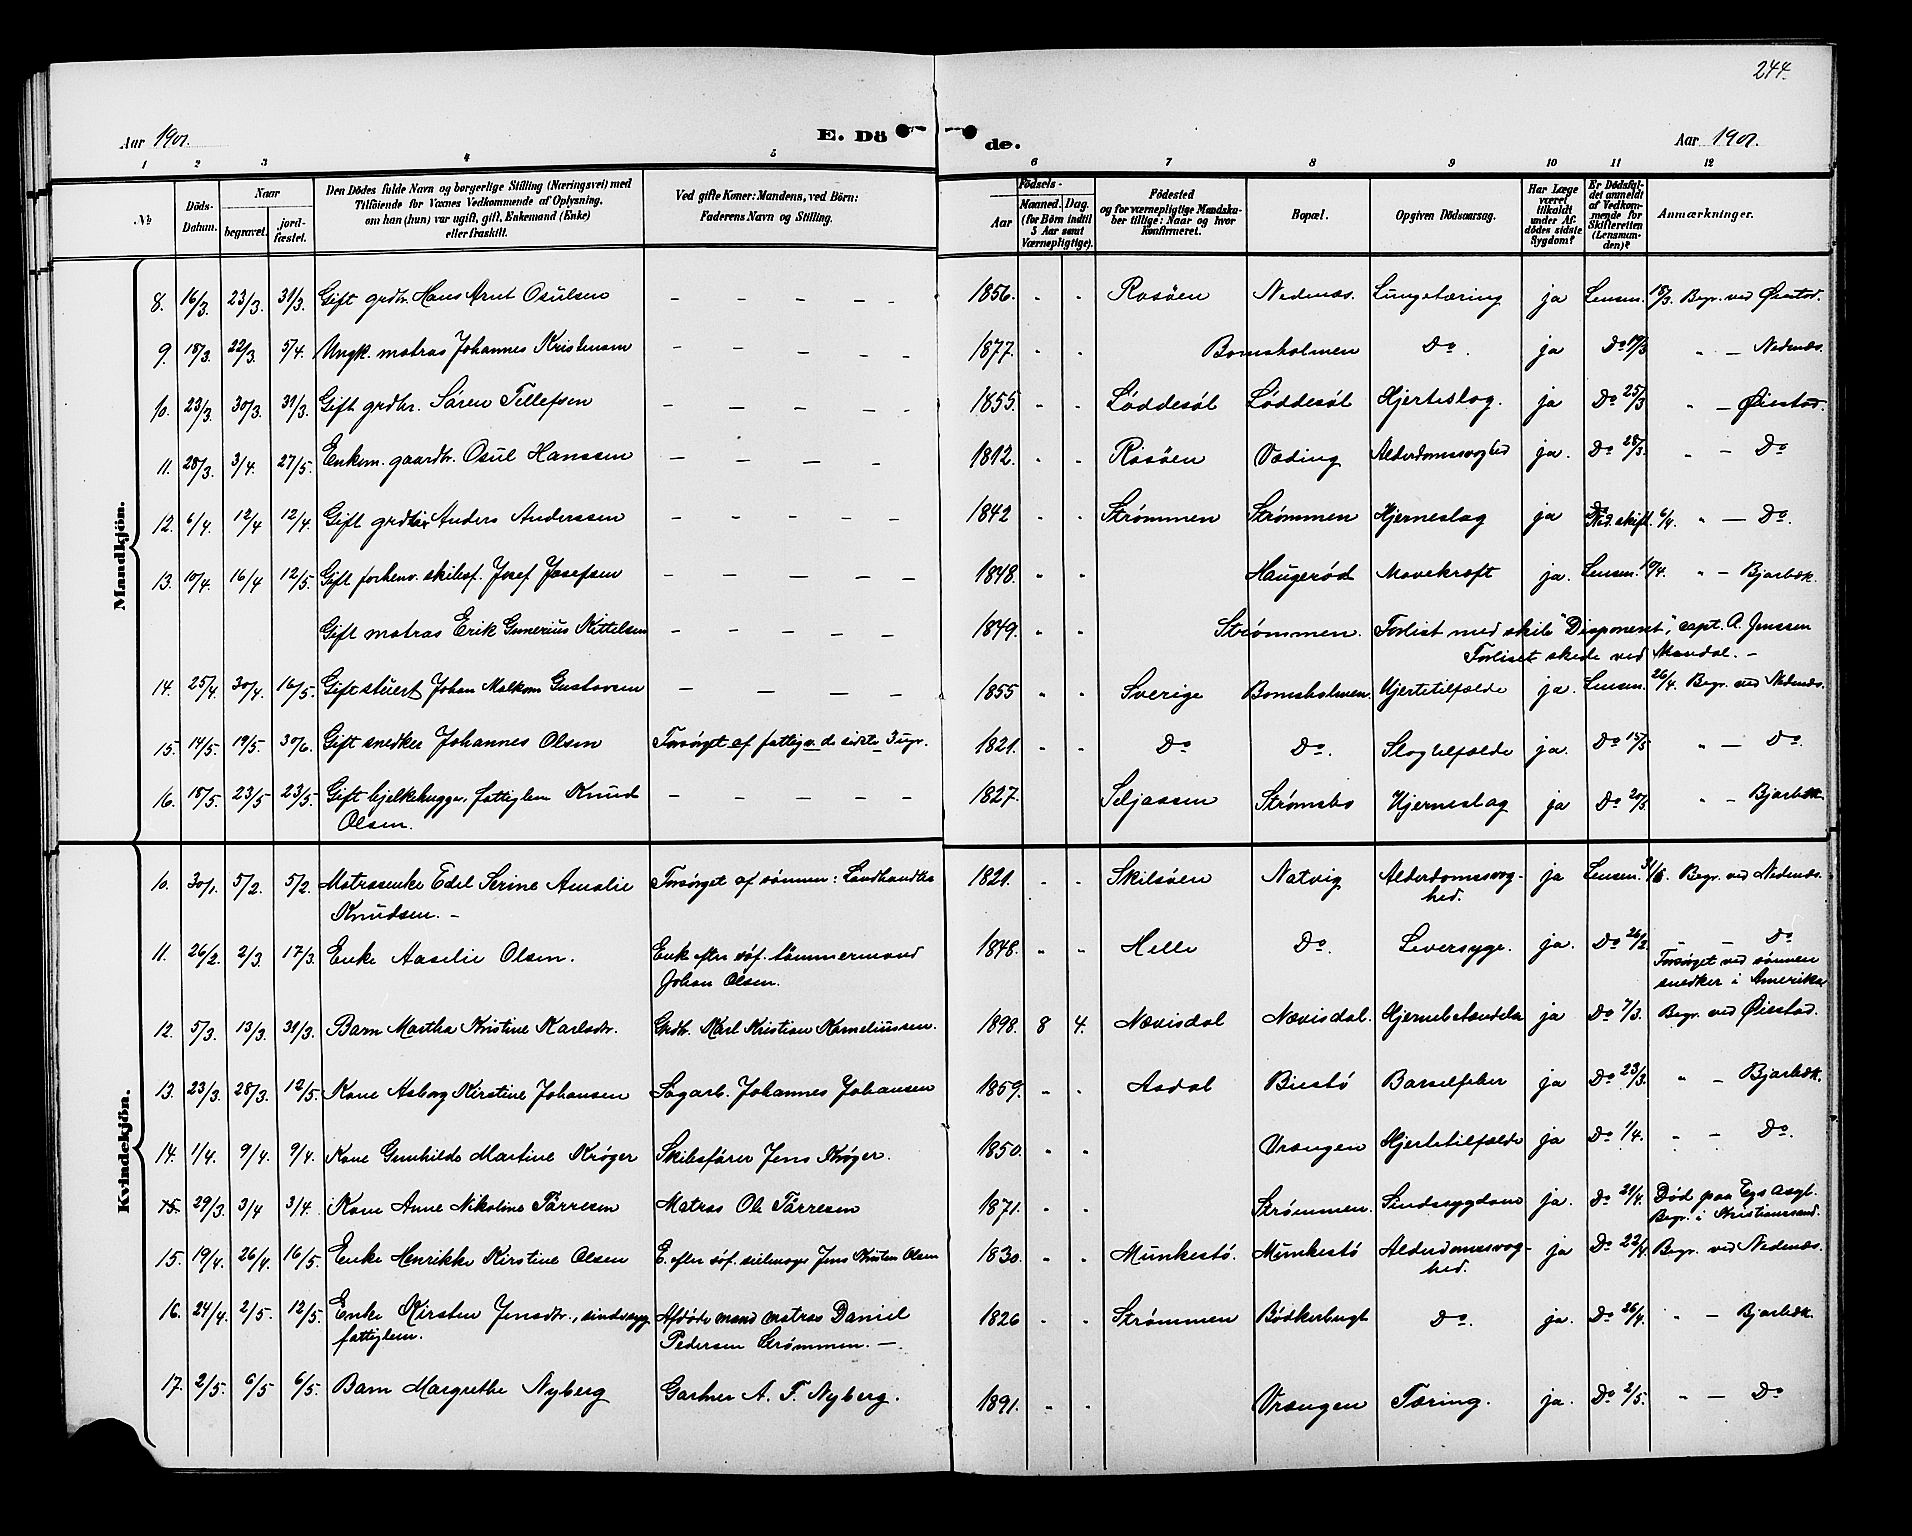 244.
Aar 1901.
E. Dö
de.
Aar 1901.
1 2 3 4 5 6 7 8 9 10 11 12
№
Döds-Datum.
Naar
begravet.
jord-fæstet.
Den Dödes fulde Navn og borgerlige Stilling (Næringsvei) med
Tilföiende for Voxnes Vedkommende af Oplysning,
om han (hun) var ugift, gift, Enkemand (Enke)
eller fraskilt.
Ved gifte Koner: Mandens, ved Börn:
Faderens Navn og Stilling.
Födsels-
Aar
Maaned. Dag.
(for Börn indtil
5 Aar samt
Værnepligtige).
Födested
og for værnepligtige Mandska-
ber tillige: Naar og hvor
konfirmeret.
Bopæl.
Opgiven Dödsaarsag.
Har Læge
været
tilkaldt
under Af-
dödes sidste
Sygdom?
Er Dödsful-
det anmeldt
af Vedkom-
mende for
Skifteretten
(Lensman-
den)?
Anmærkninger.
Mandkjön.
8. 16/3 23/3 31/3 Gift grdbr. Hans Arnt Osulsen – – – – – 1856. " " Rosøen Nedenæs. Lungetæring ja Lensm. 18/3. Begr. ved Øiestad.
9. 18/3 22/3 5/4. Ungk. matros Johannes Kristensen – – – – – 1877. " " Bomsholmen Do. ja Do 19/3 " – Nedenæs.
10. 23/3 30/3 31/3 Gift grdbr. Sören Tellefsen – – – – – 1855. " " Løddesøl Løddesøl Hjerteslag. ja Do 25/3 " – Øiestad.
11. 28/3 3/4. 27/5. Enkem. gaardbr. Osul Hanssen – – – – – 1812. " " Rosøen Væding Alderdomssvaghed ja. Do 28/3. " – Do
12. 6/4 12/4 12/4. Gift grdbr. Anders Anderssen – – – – – 1842 " " Strømmen Strømmen Hjerneslag ja Ned. skift. 6/4. " – Do.
13. 10/4. 16/4 12/5. Gift forhenv. skibsf. Josef Josefsen – – – – – 1848. " " Haugerød Mavekræft ja. Lensm. 10/4. " – Bjorbæk.
Gift matros Erik Gunerius Kittelsen – – – – – 1849. " " Strømmen. Forlist med skib "Disponent", capt. A. Jenssen
Forliset skede ved Mandal. –
14. 25/4 30/4. 16/5. Gift stuert Johan Malkom Gustavsen – – – – 1855 " " Sverige Bomsholmen. Hjertetilfælde ja. Lensm. 26/4. Begr. ved Nedenæs.
15. 14/5. 19/5. 30/6. Gift snedker Johannes Olsen Forsörget af fattigv. de sidste 3 ugr. 1821. " " Do Do. Slagtilfælde ja. Do 15/5 " – Do.
16. 18/5. 23/5 23/5. Gift bjelkehugger, fattiglem Knud – – – – – 1827. Seljaasen Strømsbo Hjerneslag ja Do 20/5 " – Bjorbæk
Olsen.
Kvindekjön.
10. 30/1. 5/2. 5/2. Matrosenke Edel Serine Amalie Forsörget af sönnen: Landhandler 1821. " " Skilsöen Natvig Alderdomssvag- ja Lensm. 31/1. Begr. ved Nedenæs.
Knudsen. – hed.
11. 26/2. 2/3. 17/3. Enke Aaselie Olsen. Enke efter söf. tömmermand 1848. " " Helle Do. Leversyge. ja. Do 26/2 – – Do
Johan Olsen. Forsörget ved sönnen
snedker i Amerika
12. 5/3. 13/3. 31/3. Barn Martha Kristine Karlsdtr. Grdbr. Karl Kristian Korneliussen. 1898. 8 4. Nævisdal Nævisdal. Hjernebetændelse ja Do 7/3. Begr. ved Øiestad.
13. 23/3. 28/3. 12/5. Kone Asborg Kirstine Johansen Sagarb. Johannes Johansen 1859. " " Asdal Biestö Barselfeber ja Do 23/3. " – Bjorbæk.
14. 1/4. 9/4. 9/4. Kone Gunhilde Martine Krøger Skibsfører Jens Krøger. 1850. " " Vrængen Hjertetilfælde ja Do 1/4. " – Do.
15. 29/3. 3/4 3/4. Kone Anne Nikoline Tärresen Matros Ole Tärresen 1871. " " Strømmen. Sindssygdom ja. Do 21/4. Död paa Egs Asyl.
Begr. i Kristianssand.
15. 19/4. 26/4. 16/5. Enke Henrikke Kirstine Olsen E. efter söf. seilmager Jens Kristen Olsen 1830. " " Munkestö. Munkestö Alderdomssvag- ja Do 22/4. Begr. ved Nedenæs.
hed.
16. 24/4. 2/5. 12/5. Enke Kirsten Jensdtr., sindssyg Afdöde mand matros Daniel 1826 " " Strømmen Bödkerbugt Do. ja. Do 26/4. " – Bjorbæk.
fattiglem. Pedersen Strømmen. –
17. 2/5. 6/5 6/5. Barn Margrethe Nyberg Gartner A. F. Nyberg. 1891. " " Vrængen Tæring. ja. Do 2/5. " – Do